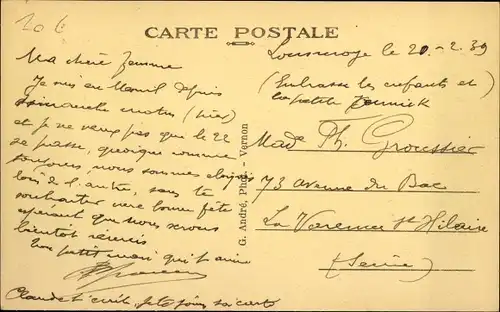 20 €
CARTE POSTALE
Ma chère femme
Je suis au Mesnil depuis
dimanche matin (hier)
et je ne veux pas que le 22
se passe, quoique comme
toujours, nous sommes éloignés
loin de l'autre, sans te
souhaiter une bonne fête
espérant que nous serons
bientôt réunis
Ton petit mari qui t'aime
Claudet écrit, je te joins sa carte
G. André, Phot. - Vernon
le 20-2.39
(Embrasse les enfants et
la petite Yannick
Mad Th. Groussier
73 avenue du Bac
La Varenne St Hilaire
(Seine)